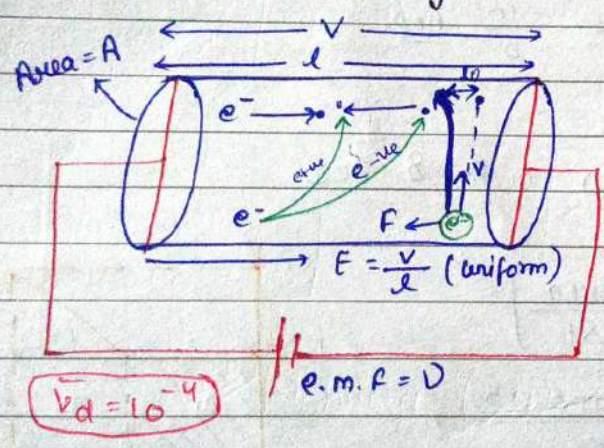 V
l
Area = A
e⁻
e+ve
e-ve
e⁻
V
F
e⁻
E = V/l (uniform)
e.m.f = V
Vd = 10⁻⁴